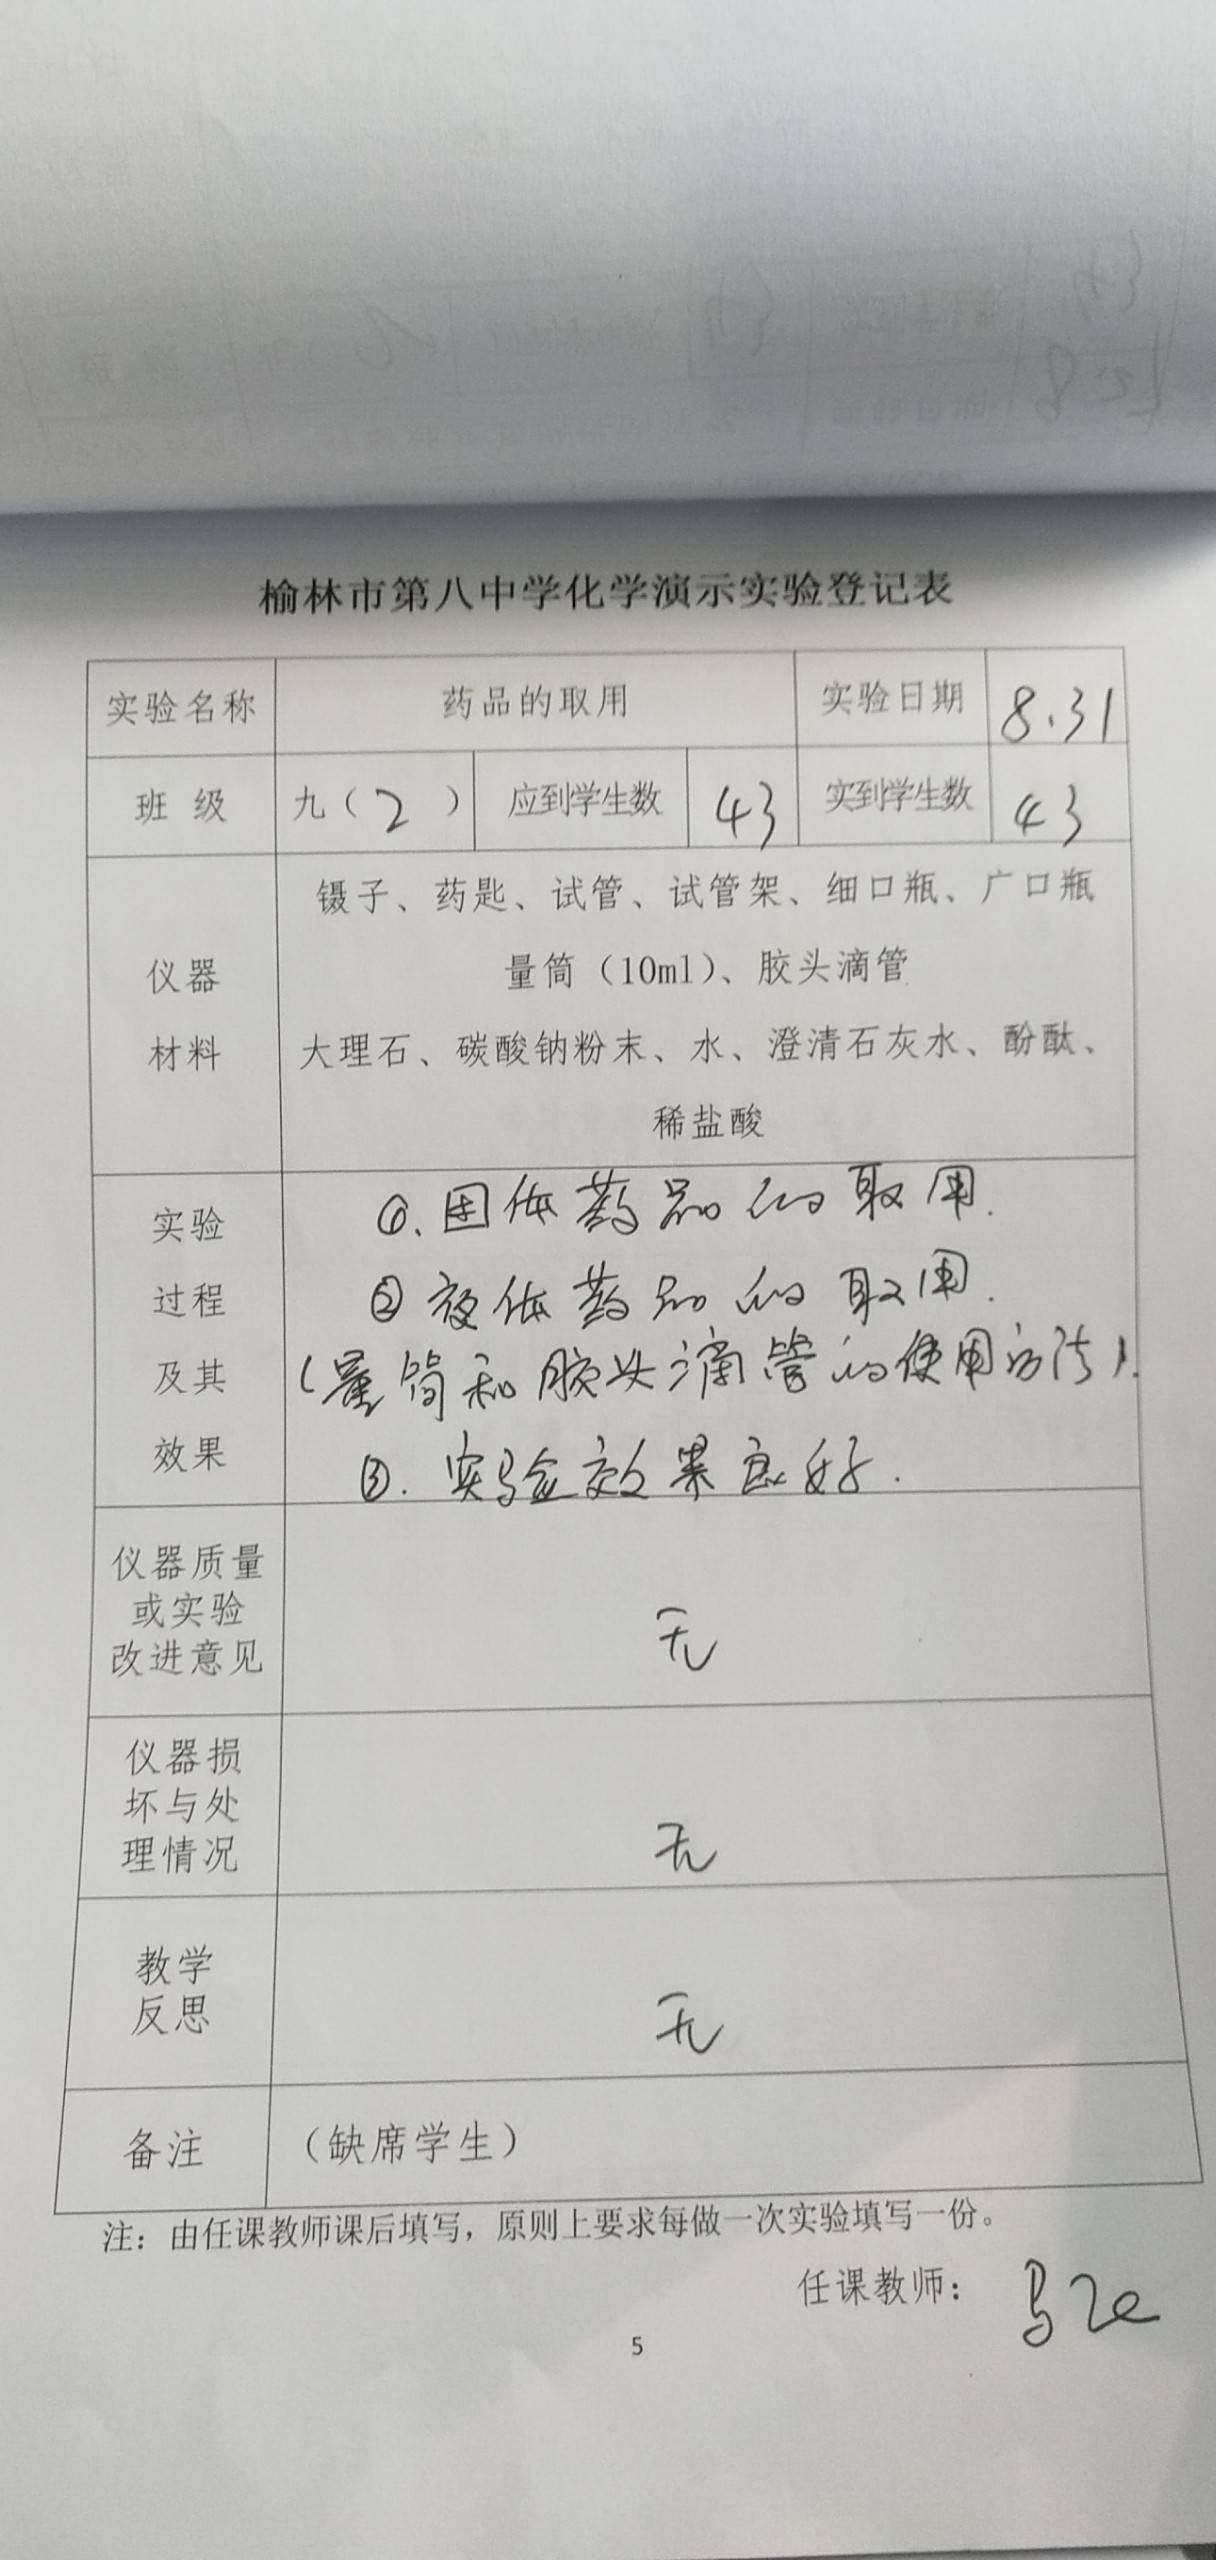 榆林市第八中学化学演示实验登记表
实验名称 药品的取用 实验日期 8.31
班 级 九（2） 应到学生数 43 实到学生数 43
仪器
材料
镊子、药匙、试管、试管架、细口瓶、广口瓶
量筒（10ml）、胶头滴管
大理石、碳酸钠粉末、水、澄清石灰水、酚酞、
稀盐酸
实验
过程
及其
效果
①.固体药品的取用.
②液体药品的取用.
(量筒和胶头滴管的使用方法).
③.实验效果良好.
仪器质量
或实验
改进意见
无
仪器损
坏与处
理情况
无
教学
反思
无
备注 （缺席学生）
注：由任课教师课后填写，原则上要求每做一次实验填写一份。
任课教师：
5